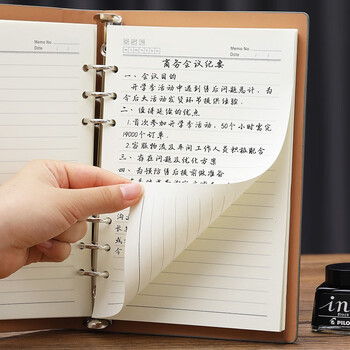 Memo No.
Date
Memo No.
Date
商务会议纪要
一、会议目的
开学季活动中遇到售后问题总计,为
今后大活动发货环节提供经验.
二、值得延续的优点
1.首次参加开学季活动,50个小时需完
19000个订单.
2.客服物流及车间工作人员积极配合
三、存在问题及优化方案
四、为预防售后提前做准备
沟
长
点
今
in
PILO